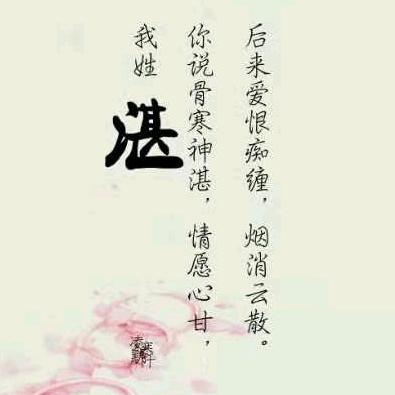 我姓湛
你说骨寒神湛，情愿心甘，
后来爱恨痴缠，烟消云散。